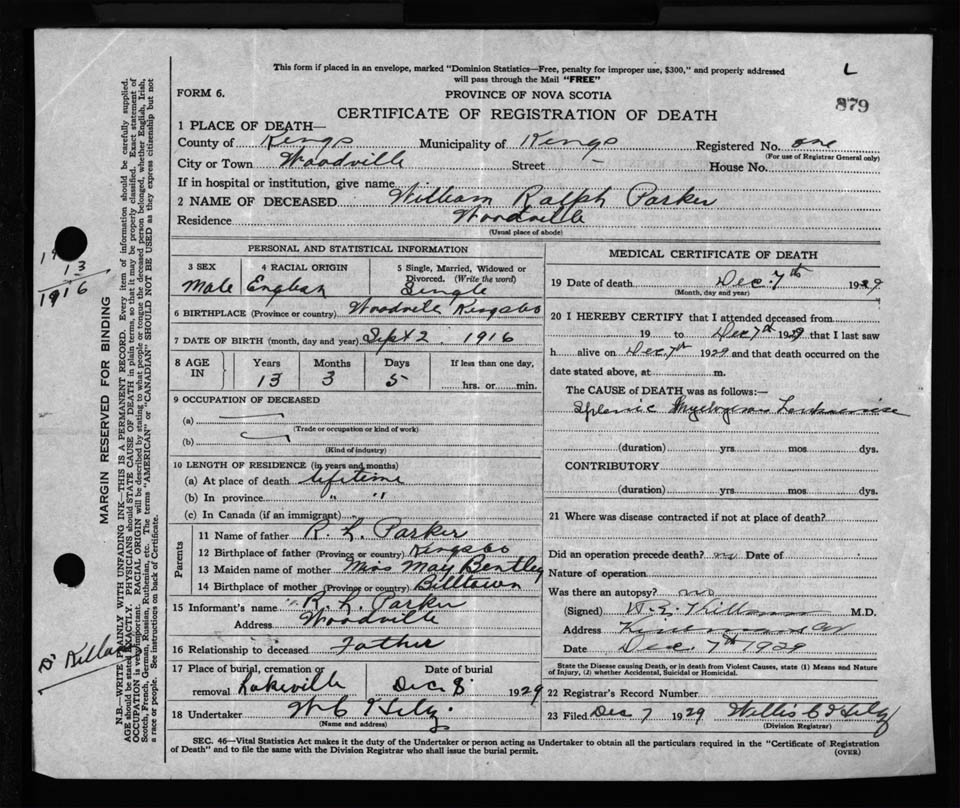 This form if placed in an envelope, marked "Dominion Statistics—Free, penalty for improper use, $300," and properly addressed
will pass through the Mail "FREE"
L
FORM 6.
PROVINCE OF NOVA SCOTIA
879
CERTIFICATE OF REGISTRATION OF DEATH
1 PLACE OF DEATH—
County of Kings Municipality of Kings Registered No. one
(For use of Registrar General only)
City or Town Woodville Street — House No.
If in hospital or institution, give name
2 NAME OF DECEASED William Ralph Parker
Residence Woodville
(Usual place of abode)
PERSONAL AND STATISTICAL INFORMATION
3 SEX Male
4 RACIAL ORIGIN English
5 Single, Married, Widowed or Divorced. (Write the word) Single
6 BIRTHPLACE (Province or country) Woodville Kings Co
7 DATE OF BIRTH (month, day and year) Sept 2 1916
8 AGE IN
Years Months Days If less than one day,
13 3 5 hrs. or min.
9 OCCUPATION OF DECEASED
(a)
(Trade or occupation or kind of work)
(b)
(Kind of industry)
10 LENGTH OF RESIDENCE (in years and months)
(a) At place of death lifetime
(b) In province " "
(c) In Canada (if an immigrant)
Parents
11 Name of father R. L. Parker
12 Birthplace of father (Province or country) Kings Co
13 Maiden name of mother Miss May Bentley
14 Birthplace of mother (Province or country) Billtown
15 Informant's name R. L. Parker
Address Woodville
16 Relationship to deceased Father
17 Place of burial, cremation or removal Lakeville
Date of burial Dec 8 1929
18 Undertaker W C
(Name and address)
MEDICAL CERTIFICATE OF DEATH
19 Date of death Dec. 7th 1929
(Month, day and year)
20 I HEREBY CERTIFY that I attended deceased from
19 to Dec 7th 1929 that I last saw
h alive on Dec. 7th 1929 and that death occurred on the
date stated above, at m.
The CAUSE of DEATH was as follows:
Splenic
(duration) yrs. mos. dys.
CONTRIBUTORY
(duration) yrs. mos. dys.
21 Where was disease contracted if not at place of death?
Did an operation precede death? no Date of
Nature of operation
Was there an autopsy? no
(Signed) M.D.
Address
Date Dec. 7th 1929
State the Disease causing Death, or in death from Violent Causes, state (1) Means and Nature
of Injury, (2) whether Accidental, Suicidal or Homicidal.
22 Registrar's Record Number
23 Filed Dec 7 1929 Willis C
(Division Registrar)
SEC. 46—Vital Statistics Act makes it the duty of the Undertaker or person acting as Undertaker to obtain all the particulars required in the "Certificate of Registration
of Death" and to file the same with the Division Registrar who shall issue the burial permit.
(OVER)
MARGIN RESERVED FOR BINDING
N.B.—WRITE PLAINLY WITH UNFADING INK—THIS IS A PERMANENT RECORD. Every item of information should be carefully supplied.
AGE should be stated EXACTLY. PHYSICIANS should STATE CAUSE OF DEATH in plain terms, so that it may be properly classified. Exact statement of
OCCUPATION is very important. RACIAL ORIGIN will be described by stating to what people or tongue the deceased person belonged, whether English, Irish,
Scotch, French, German, Russian, Ruthenian, etc. The terms "AMERICAN" or "CANADIAN" SHOULD NOT BE USED as they express citizenship but not
a race or people. See instructions on back of Certificate.
13
1916